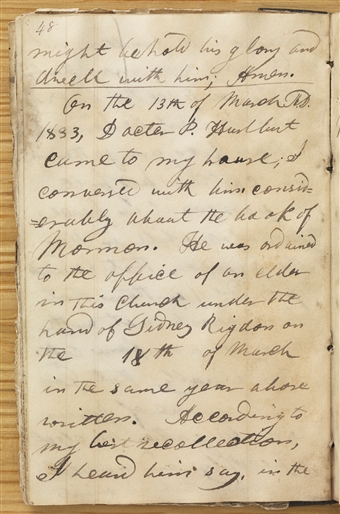 48
might behold his glory and
dwell with him; Amen.
On the 13th of March AD.
1833, Docter P. Hurlbut
came to my house; I
conversed with him consid=
=erably about the book of
Mormon. He was ordained
to the office of an elder
in this church under the
hand of Sidney Rigdon on
the 18th of March
in the same year above
written. According to
my best recollection,
I heard him say, in the